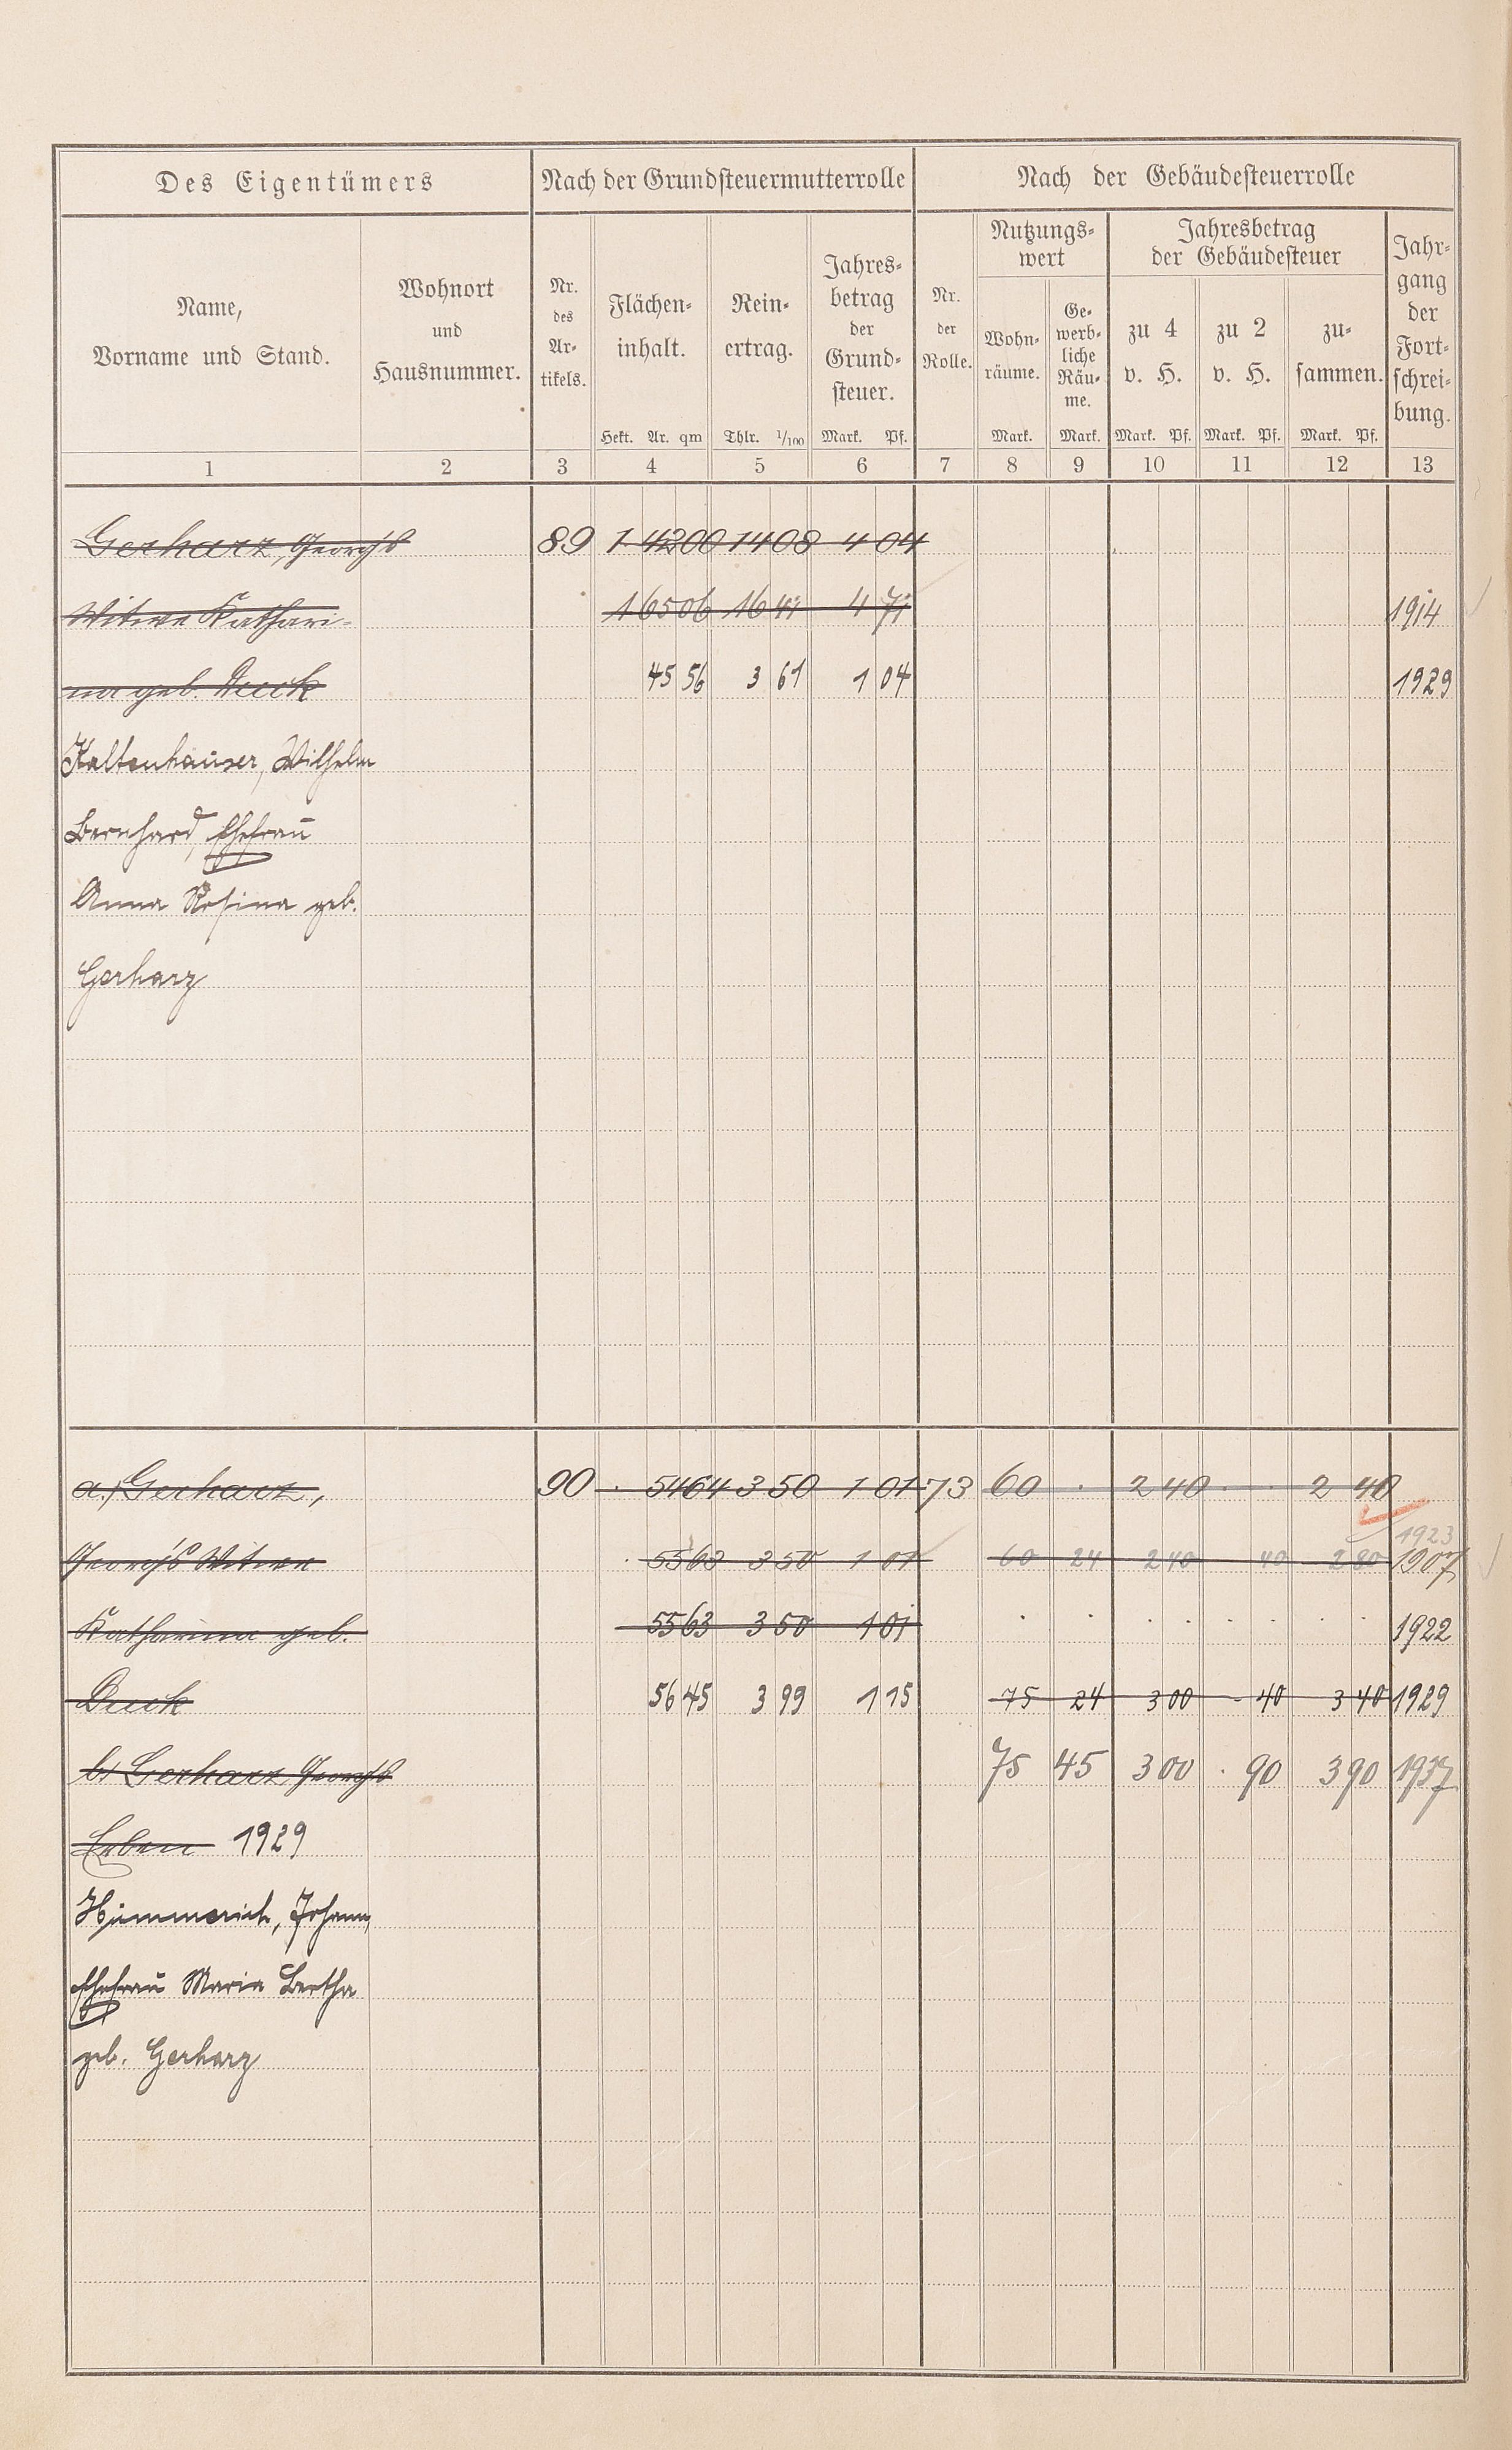 Des Eigentümers Nach der Grundsteuermutterrolle Nach der Gebäudesteuerrolle
Name,
Vorname und Stand.
Wohnort
und
Hausnummer.
Nr.
des
Ar-
tikels.
Flächen-
inhalt.
Hekt. Ar. qm
Rein-
ertrag.
Thlr. 1/100
Jahres-
betrag
der
Grund-
steuer.
Mark. Pf.
Nr.
der
Rolle.
Nutzungs-
wert
Wohn-
räume.
Mark.
Ge-
werb-
liche
Räu-
me.
Mark.
Jahresbetrag
der Gebäudesteuer
zu 4
v. H.
Mark. Pf.
zu 2
v. H.
Mark. Pf.
zu-
sammen.
Mark. Pf.
Jahr-
gang
der
Fort-
schrei-
bung.
1 2 3 4 5 6 7 8 9 10 11 12 13
Gerharz, Georgs 89 1 42 00 14 08 4 04
Witwe Kathari- 1 65 06 16 41 4 71 1914
na geb. Duck 45 56 3 61 1 04 1929
Kaltenhäuser, Wilhelm
Bernhard, Ehefrau
Anna Rosina geb.
Gerharz
a.) Gerharz, 90 . 54 64 3 50 1 01 73 60 . 2 40 . . 2 40
1923
Georgs Witwe . 55 63 3 50 1 01 60 24 2 40 40 2 80 1907
Katharina geb. 55 63 3 50 1 01 . . . . . . . . 1922
Duck 56 45 3 99 1 15 75 24 3 00 - 40 3 40 1929
b) Gerharz Georgs 75 45 3 00 . 90 3 90 1937
Erben 1929
Hümmerich, Johann,
Ehefrau Maria Bertha
geb. Gerharz